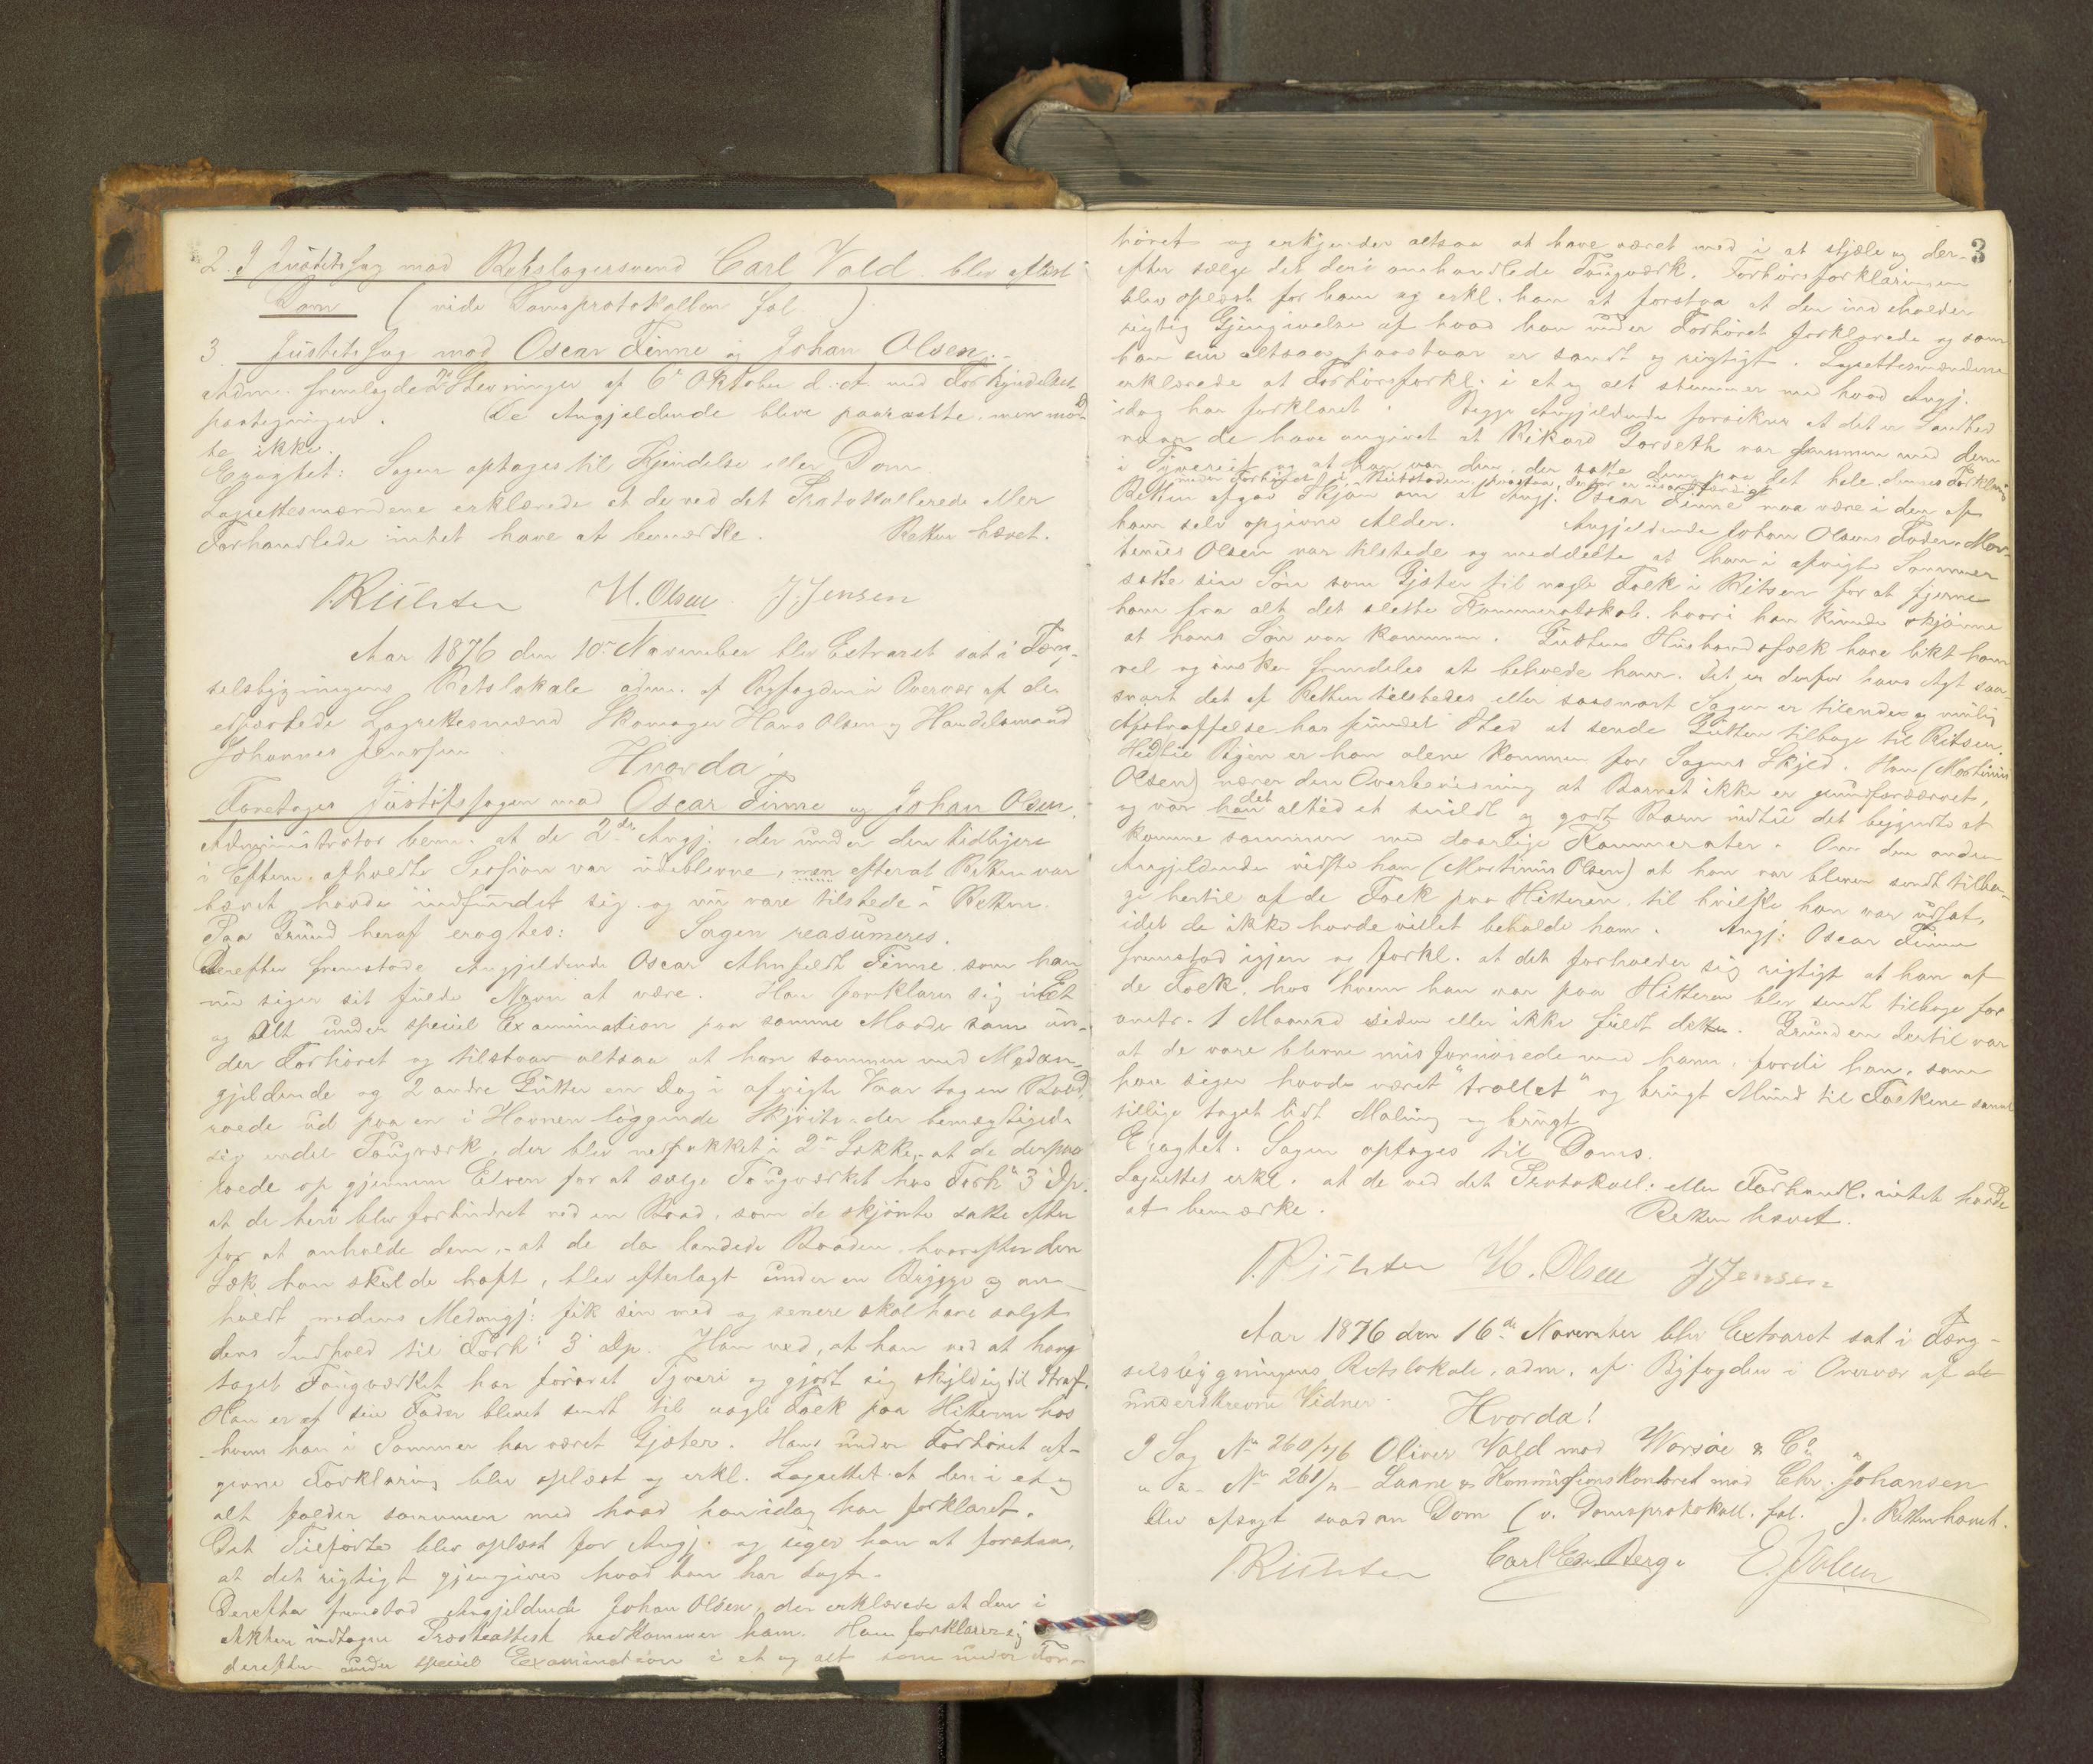 2. I Justitssag mod Rebslagersvend Carl Vold blev afsagt
Dom (vide Domsprotokollen fol. )
3 Justitssag mod Oscar Finne og Johan Olsen.
Adm. fremlagde 2de Stevninger af 6te Oktober d. A. med Forkyndelses
paategninger. De Angjeldende bleve paaraabte, men mød
te ikke.
Eragtet: Sagen optages til Kjendelse eller Dom.
Lagrettesmændene erklærede at de ved det Protokollerede eller
Forhandlede intet have at bemærke. Retten hævet.
Richter H. Olsen J. Jensen
Aar 1876 den 10de November blev Extraret sat i Fæng-
selsbygningens Retslokale adm. af Byfogden i Overvær af de
edfæstede Lagrettesmænd Skomager Hans Olsen og Handelsmand
Johannes Jensen
Hvorda,
Foretages Justitssagen mod Oscar Finne og Johan Olsen.
Administrator bem. at de 2de Angj., der under den tidligere
i Efterm. afholdte Session var udeblevne, men efterat Retten var
hævet havde indfundet sig og nu vare tilstede i Retten.
Paa Grund heraf eragtes: Sagen reasumeres.
Derefter fremstode Angjeldende Oscar Ahnfeldt Finne, som han
nu siger sit fulde Navn at være. Han forklarer sig i Et
og Alt under speciel Examination paa samme Maade som un-
der Forhøret og tilstaar altsaa at han sammen med Medan-
gjeldende og 2 andre Gutter en Dag i afvigte Vaar tog en Baad,
roede ud paa en i Havnen liggende Skjøite, der bemægtigede
sig endel Tougværk, der blev nedpakket i 2de Sække, at de derpaa
roede op gjennem Elven for at sælge Tougværket hos Forh. 3 Dp.
at de heri blev forhindret ved en Baad, som de skjønte satte efter
for at anholde dem, at de da landede Baaden, hvorefter den
Sæk han skulde havt, blev efterlagt under en Brygge og an-
holdt medens Medangj. fik sin med og senere skal have solgt
dens Indhold til Forh. 3 Dp. Han ved, at han ved at have
taget Tougværket har forøvet Tyveri og gjort sig skyldig til Straf.
Han er af sin Fader blevet sendt til nogle Folk paa Hitteren hos
hvem han i Sommer har været Gjæter. Hans under Forhøret af-
givne Forklaring blev oplæst og erkl. Lagrettet at den i et og
alt falder sammen med hvad han idag har forklaret.
Det Tilførte blev oplæst for Angj. og siger han at forstaa,
at det rigtigt gjengiver hvad han har sagt.
Derefter fremstod Angjeldende Johan Olsen, der erklærede at den i
Akten indtagne Præsteattest vedkommer ham. Han forklarer sig
derefter under speciel Examination i et og alt som under For-
3
høret og erkjender altsaa at have været med i at stjæle og der-
efter sælge det deri omhandlede Tougværk. Forhørsforklaringen
blev oplæst for ham og erkl. han at forstaa at den indeholder
rigtig Gjengivelse af hvad han under Forhøret forklarede og som
han nu altsaa paastaar er sandt og rigtigt. Lagrettesmændene
erklærede at Forhørsforkl. i et og alt stemmer med hvad Angj.
idag har forklaret. Begge Angjeldende forsikrer at det er Sandhed
naar de have angivet at Rikard Gorseth var sammen med dem
i Tyveriet og at han var den, der satte dem paa det hele, dennes Forklaring
under Forhøret derfor er usandfærdig
Retten afgav Skjøn om at Angj. Oscar Finne maa være i den af
ham selv opgivne Alder. Angjeldende Johan Olsens Fader Mor-
tinus Olsen var tilstede og meddelte at han i afvigte Sommer
satte sin Søn som Gjæter til nogle Folk i Ritsen for at fjerne
ham fra alt det slette Kammeratskab, hvori han kunde skjønne
at hans Søn var kommen. Guttens Husbondsfolk have likt ham
vel og ønsker fremdeles at beholde ham. Det er derfor hans Agt saa-
snart det af Retten tilstedes eller saasnart Sagen er tilende og mulig
Afstraffelse har fundet Sted at sende Gutten tilbage til Ritsen.
Hidtil Byen er han alene kommen for Sagens Skyld. Han (Martinus
Olsen) nærer den Overbevisning at Barnet ikke er grundfordærvet,
og var det altid et snildt og godt Barn indtil det begyndte at
komme sammen med daarlige Kammerater. Om den anden
Angjeldende vidste han (Martinus Olsen) at han var bleven sendt tilba-
ge hertil af de Folk paa Hitteren, til hvilke han var udsat,
idet de ikke havde villet beholde ham. Angj. Oscar Finne
fremstod igjen og forkl. at det forholder sig rigtigt at han af
de Folk, hos hvem han var paa Hitteren blev sendt tilbage for
omtr. 1 Maaned siden eller ikke fuldt dette. Grunden dertil var
at de vare blevne misfornøiede med ham, fordi han, som
han siger havde været "trollet" og brugt Mund til Folkene samt
tillige taget lidt Maling og brugt
Eragtet. Sagen optages til Doms.
Lagrettet erkl. at de ved det Protokoll. eller Forhandl. intet havde
at bemærke. Retten hævet.
Richter H. Olsen J Jensen
Aar 1876 den 16de November blev Extraret sat i Fæng-
selsbygningens Retslokale, adm. af Byfogden i Overvær af de
underskrevne Vidner. Hvorda!
I Sag No 260/76 Oliver Vold mod Worsøe & Co
" " No 261/" Laane & Kommissionskontoret mod Chr. Johansen
blev afsagt saadan Dom (v. Domsprotokoll. fol. ). Retten hævet.
Richter Carl Berg